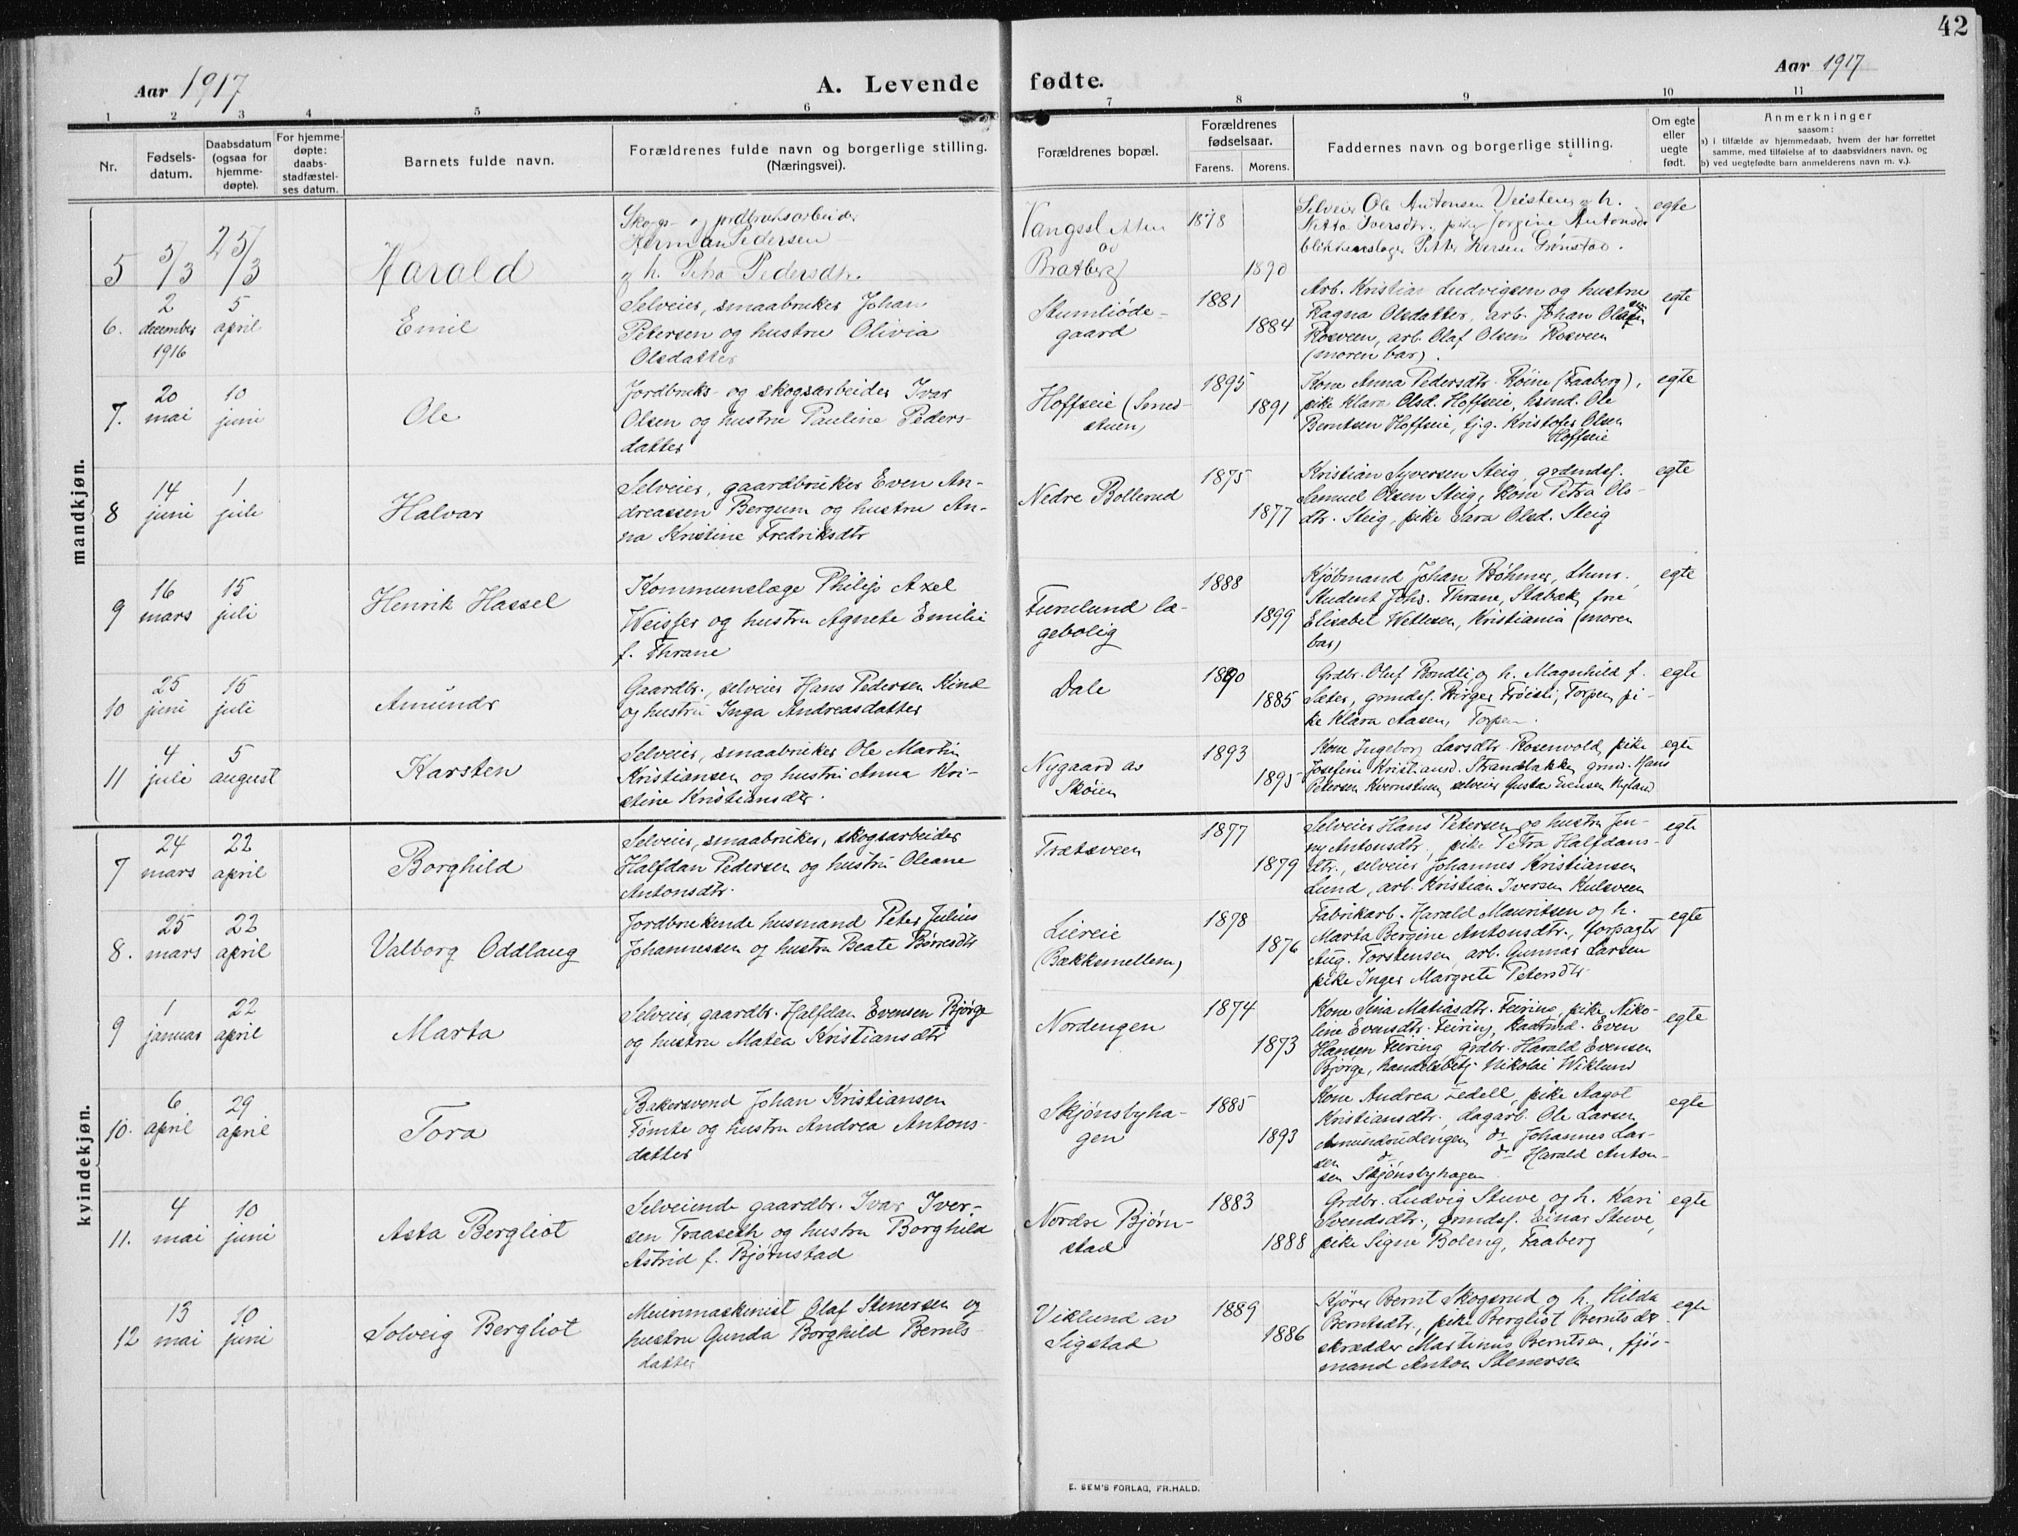 42
Aar 1917
A. Levende fødte.
Aar 1917
1 2 3 4 5 6 7 8 9 10 11
Nr.
Fødsels-
datum.
Daabsdatum
(ogsaa for
hjemme-
døpte).
For hjemme-
døpte:
daabs-
stadfæstel-
ses datum.
Barnets fulde navn.
Forældrenes fulde navn og borgerlige stilling.
(Næringsvei).
Forældrenes bopæl.
Forældrenes
fødselsaar.
Farens. Morens.
Faddernes navn og borgerlige stilling.
Om egte
eller
uegte
født.
Anmerkninger
saasom:
a) i tilfælde av hjemmedaab, hvem der har forrettet
samme, med tilføielse af to daabsvidners navn, og
b) ved uegtefødte barn anmelderens navn m. v.).
mandkjøn.
5
5/3
25/3
Harald
Skogs- og jordbruksarbeider
Herman Pedersen
og h. Petra Pedersdtr.
Vangssletten
av
Bratberg
1878
1890
Selveier Ole Antonsen Veisten og h.
Iversdtr. pike Jorgine Antonsdr
blikkenslager Petter Iversen Grønstad.
egte
6.
2
december
1916
5
april
Emil
Selveier, smaabruker Johan
Petersen og hustru Olivia
Olsdatter
Stumliøde-
gaard
1881
1884
Arb. Kristian Ludvigsen og hustru
Ragna Olsdatter, arb. Johan Olsen
Rosveen, arb. Olaf Olsen Rosveen
(moren bar).
egte
7.
20
mai
10
juni
Ole
Jordbruks- og skogsarbeider Ivar
Olsen og hustru Pauline Peders-
datter
Hoffseie (Smed-
stuen)
1895
1891
Kone Anna Pedersdtr. Roine (Faaberg),
pike Klara Olsd. Hoffseie, husmd. Ole
Berntsen Hoffseie, tj.g. Kristofer Olsen
Hoffseie
egte
8
14
juni
1
juli
Halvar
Selveier, gaardbruker Even An-
dreassen Bergum og hustru An-
na Kristine Fredriksdtr
Nedre Bollerud
1875
1877
Kristian Syversen Steig, grdmdsf.
Samuel Olsen Steig, kone Petra Ols-
dtr. Steig, pike Sara Olsd. Steig
egte
9
16
mars
15
juli
Henrik Hassel
Kommunelæge Philip Axel
Weisser og hustru Agnete Emilie
f. Thrane
Furulund læ-
gebolig
1888
1899
Kjøbmand Johan Bøhmer,
Student Johs. Thrane, Stabæk, frue
Elisabet Wetlesen, Kristiania (moren
bar)
egte
10
25
juni
15
juli
Amundr
Gaardbr., selveier Hans Pedersen Kind
og hustru Inga Andreasdatter
Dale
1880
1885
Grdbr. Oluf Rondli og h. Magnhild f.
Sæter, grmdsf. Birger Frøisli, Torpen, pi-
ke Klara Aasen, Torpen.
egte
11
4
juli
5
august
Karsten
Selveier, smaabruker Ole Martin
Kristiansen og hustru Anna Kri-
stine Kristiansdtr.
Nygaard av
Skøien
1893
1895
Kone Ingeborg Larsdtr. Rosenvold, pike
Josefine Kristiansd. Strandbakken, grmd. Hans
Petersen Kvernstuen, selveier Gustav Evensen Nyland
egte
kvindekjøn.
7
24
mars
22
april
Borghild
Selveier, smaabruker, skogsarbeider
Halfdan Pedersen og hustru Oleane
Antonsdtr.
Trætsveen
1877
1879
Selveier Hans Petersen og hustru Jen-
ny Antonsdtr., pike Petra Halfdans-
dtr., selveier Johannes Kristiansen
Lund, arb. Kristian Iversen Kulsveen
egte
8.
25
mars
22
april
Valborg Oddlaug
Jordbrukende husmand Peter Julius
Johannessen og hustru Beate Børresdtr
Liereie
(Bækksmellem)
1878
1876
Fabrikarb. Harald Mauritsen og h.
Marta Bergine Antonsdtr., forpagter
Aug. Torstensen, arb. Gunnar Larsen
pike Inger Margrete Petersdtr
egte
9
1
januar
22
april
Marta
Selveier, gaardbr. Halfdan Evensen Bjørge
og hustru Matea Kristiansdtr
Nordengen
1874
1873
Kone Sina Matiasdtr. Feiring, pike Niko-
line Evensdtr. Feiring, Even
Hansen Feiring, grdbr. Harald Evensen
Bjørge, handelsbetj. Nikolai Wiklund
egte
10.
6
april
29
april
Tora
Bakersvend Johan Kristiansen
Tømte og hustru Andrea Antons-
datter
Skjønsbyha-
gen
1885
1893
Kone Andrea Zedell, pike Aagot
Kristiansdtr., dagarb. Ole Larsen
Amundrudengen, do Johannes Lar-
sen do do Harald Anton-
sen Skjønsbyhagen
egte
11.
4
mai
10
juni
Asta Bergliot
Selveiende gaardbr. Ivar Iver-
sen Traaseth og hustru Borghild
Astrid f. Bjørnstad
Nordre Bjørn-
stad
1883
1888
Grdbr. Ludvig Stuve og h. Kari
Svendsdtr., grmdsf. Einar Stuve,
pike Signe Boleng, Faaberg
egte
12
13
mai
10
juni
Solveig Bergliot
Meierimaskinist Olaf Stenersen og
hustru Gunda Borghild Bernts-
datter
Viklund av
Sigstad
1889
1886
Kjører Bernt Skogsrud og h. Hilda
Berntsdtr., pike Bergliot Berntsdtr
skrædder Martinus Berntsen, fjøs-
mand Anton Stenersen
egte
E. SEM'S FORLAG, FR.HALD.